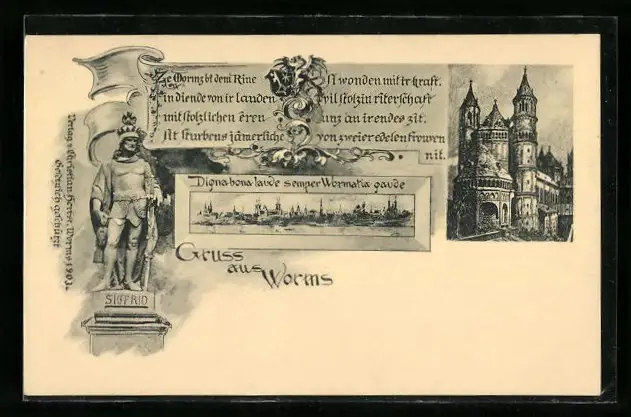 Ze Wormz bi dem Rine
si wonden mit ir kraft.
in diende von ir landen
vil stolziu riterschaft
mit stolzlichen eren
unz an ir endes zit.
sit sturbens jämerliche
von zweier edelen frowen
nit.
Digna bona laude semper Wormatia gaude
Gruss
aus
Worms
SIGFRID
Worms 1903.
gesetzlich geschützt